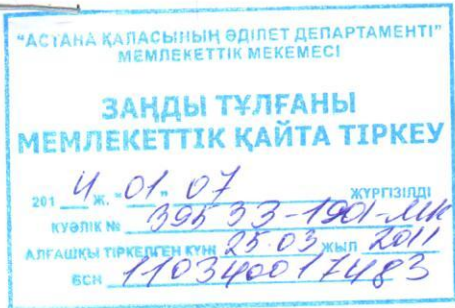 "АСТАНА ҚАЛАСЫНЫҢ ӘДІЛЕТ ДЕПАРТАМЕНТІ"
МЕМЛЕКЕТТІК МЕКЕМЕСІ
ЗАҢДЫ ТҰЛҒАНЫ
МЕМЛЕКЕТТІК ҚАЙТА ТІРКЕУ
201 4 ж. "01" 07 ЖҮРГІЗІЛДІ
КУӘЛІК № 39533-1901-МК
АЛҒАШҚЫ ТІРКЕЛГЕН КҮНІ 25.03 ЖЫЛ 2011
БСН 110340017483